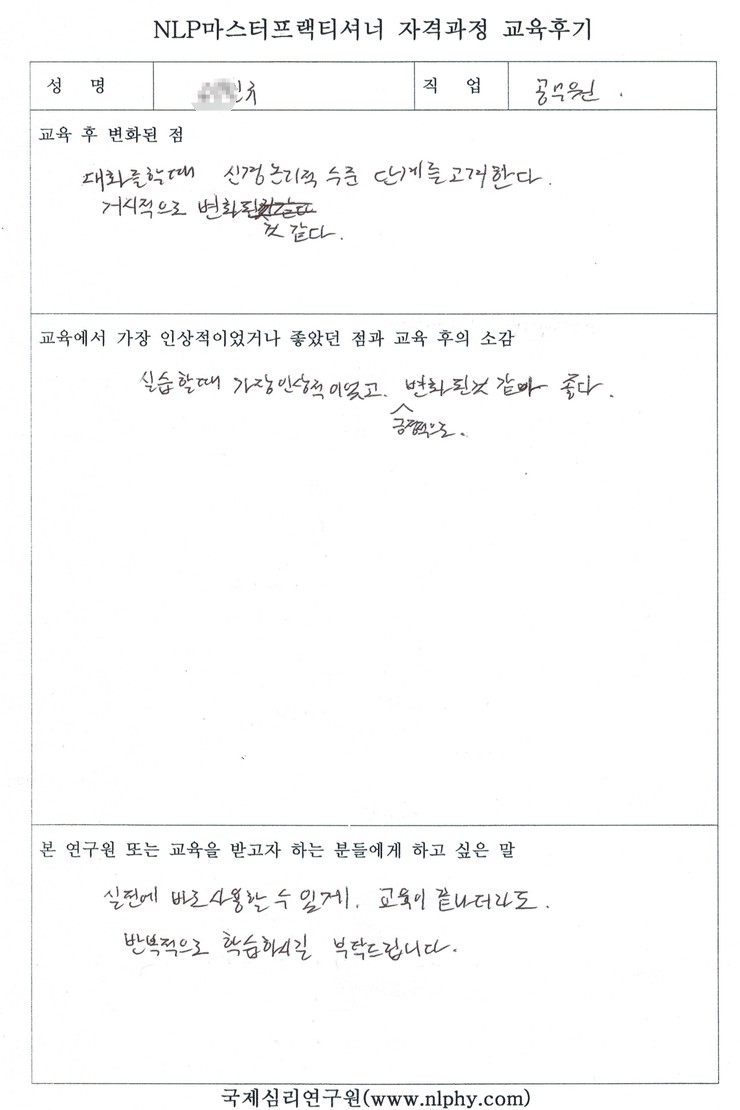 NLP마스터프랙티셔너 자격과정 교육후기
성 명 직 업 공무원.
교육 후 변화된 점
대화를할때 신경논리적 수준 단계를고려한다.
거시적으로 변화된
것 같다.
교육에서 가장 인상적이었거나 좋았던 점과 교육 후의 소감
실습할때 가장인상적이었고. 변화된것 같아 좋다.
긍정적으로.
본 연구원 또는 교육을 받고자 하는 분들에게 하고 싶은 말
실전에 바로사용할 수 있게. 교육이 끝나더라도.
반복적으로 학습하시길 부탁드립니다.
국제심리연구원(www.nlphy.com)